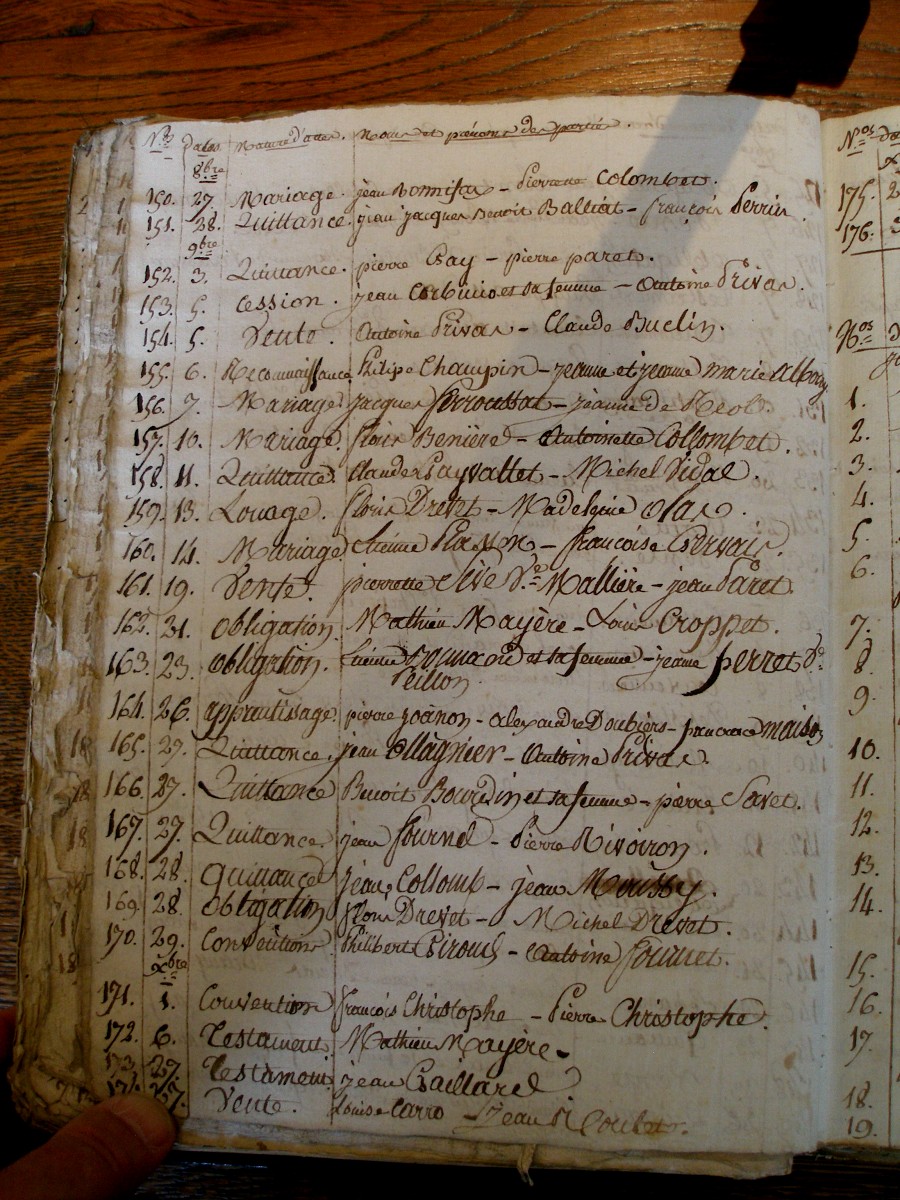 N.os Dates. Nature d'actes. Noms et prénoms des parties.
8bre
150. 27. Mariage. jean Bonnifas - Pierrette Colombet.
151. 28. Quittance jean jacques Benoit Balliat - françois Perrin.
9bre
152. 3. Quittance. pierre Gay - pierre paret.
153. 5. Cession. jean et sa femme - Antoine Privas.
154. 5. Vente. Antoine Privas - Claude Buclin.
155. 6. Reconnaissance Philipe Champin - jeanne et jeanne marie
156. 7. Mariage jacques ferroussat - jeanne de
157. 10. Mariage floris Benière - Antoinette Collombet.
158. 11. Quittance. Claude Payvallet - Michel Vidal.
159. 13. Louage. floris Drevet - Madelaine Olas.
160. 14. Mariage etienne Plasson - françoise Gervais.
161. 19. Vente. pierrette Eive De Mallière - jean Paret
162. 21. obligation. Mathieu Mayère - Louis Croppet.
163. 23. obligation. et sa femme - jeanne perret De
Peillon.
164. 26. apprentissage. pierre joanon - alexandre Doubiers - maison
165. 27. Quittance. jean ollagnier - Antoine Privas.
166. 27. Quittance Benoit Bourdin et sa femme - pierre Savet.
167. 27. Quittance jean fournel - Pierre Rivoiron.
168. 28. Quittance jean Collomb - jean Moussy.
169. 28. Obligation floris Drevet - Michel Drevet.
170. 29. Conventions Philibert Giroud - Antoine
Xbre
171. 1. Convention françois Christophe - Pierre Christophe.
172. 6. Testament Mathieu Mayère.
173. 27. Testament jean Gaillard
27. Vente. Louise Carro - jean
N.os
175. 2
176.
N.os
1.
2.
3.
4.
5.
6.
7.
8.
9.
10.
11.
12.
13.
14.
15.
16.
17.
18.
19.